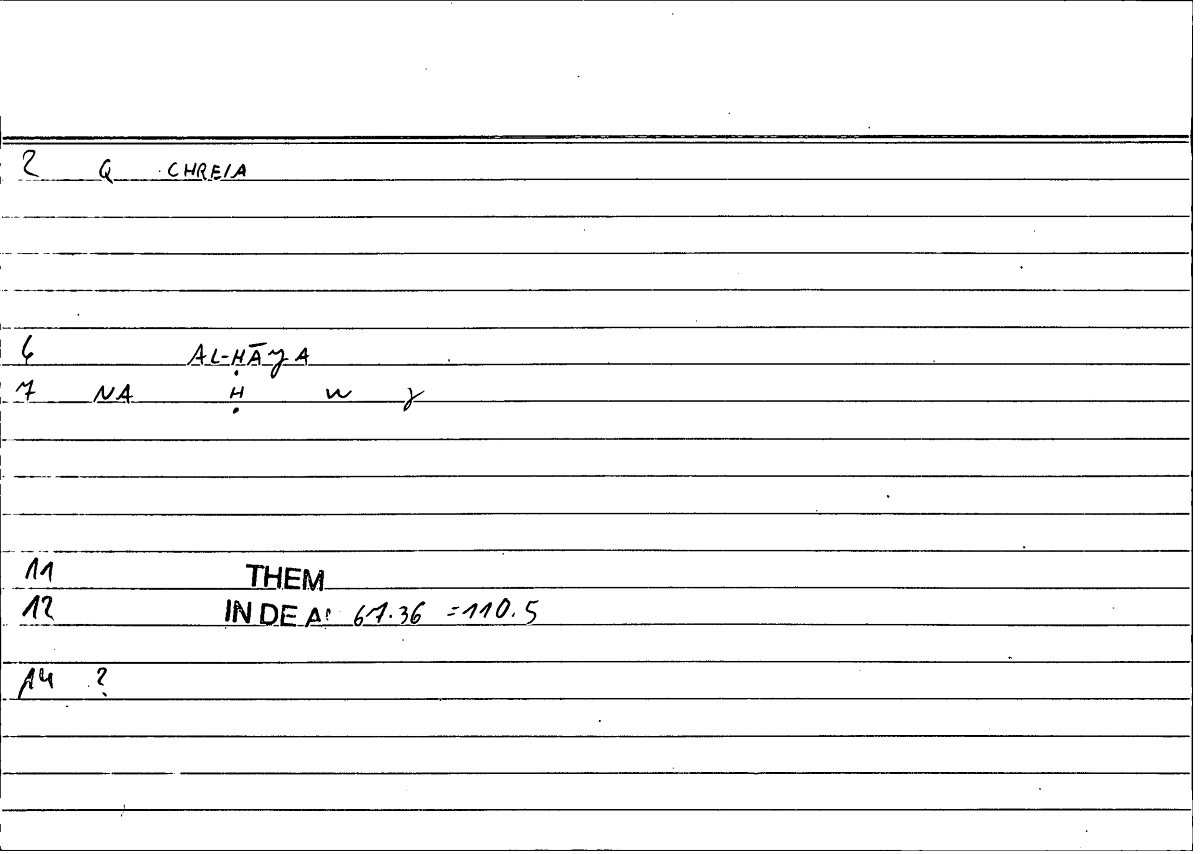 2 Q CHREIA
6 AL-ḤĀγA
7 NA Ḥ w γ
11 THEM
12 IN DE A: 67.36 =110.5
14 ?